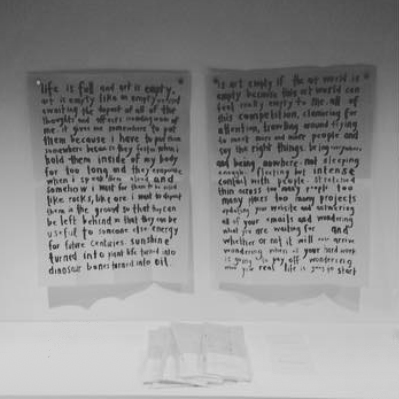 life is full and art is empty.
art is empty like an empty
awaiting the deposit of all of the
thoughts and efforts coming out of
me. it gives me somewhere to put
them because i have to put them
somewhere because they fester when i
hold them inside of my body
for too long and they
when i
somehow i must for them to be used
like rocks, like ore i must to deposit
them in the ground so that they can
be left behind so that they may be
useful to someone else energy
for future centuries. sunshine
turned into plant life turned into
dinosaur bones turned into oil.
is art empty if the art world is
empty because this art world can
feel really empty to me. all of
this competition, clamoring for
attention, traveling around trying
to meet more and more people and
say the right things. being everywhere
and being nowhere. not sleeping
enough. floating but intense
contact with people. stretched
thin across too many people too
many places too many projects
updating your website and answering
all of your emails and wondering
what you are waiting for and
whether or not it will ever arrive
wondering when all your hard work
is going to pay off wondering
when your real life is going to start